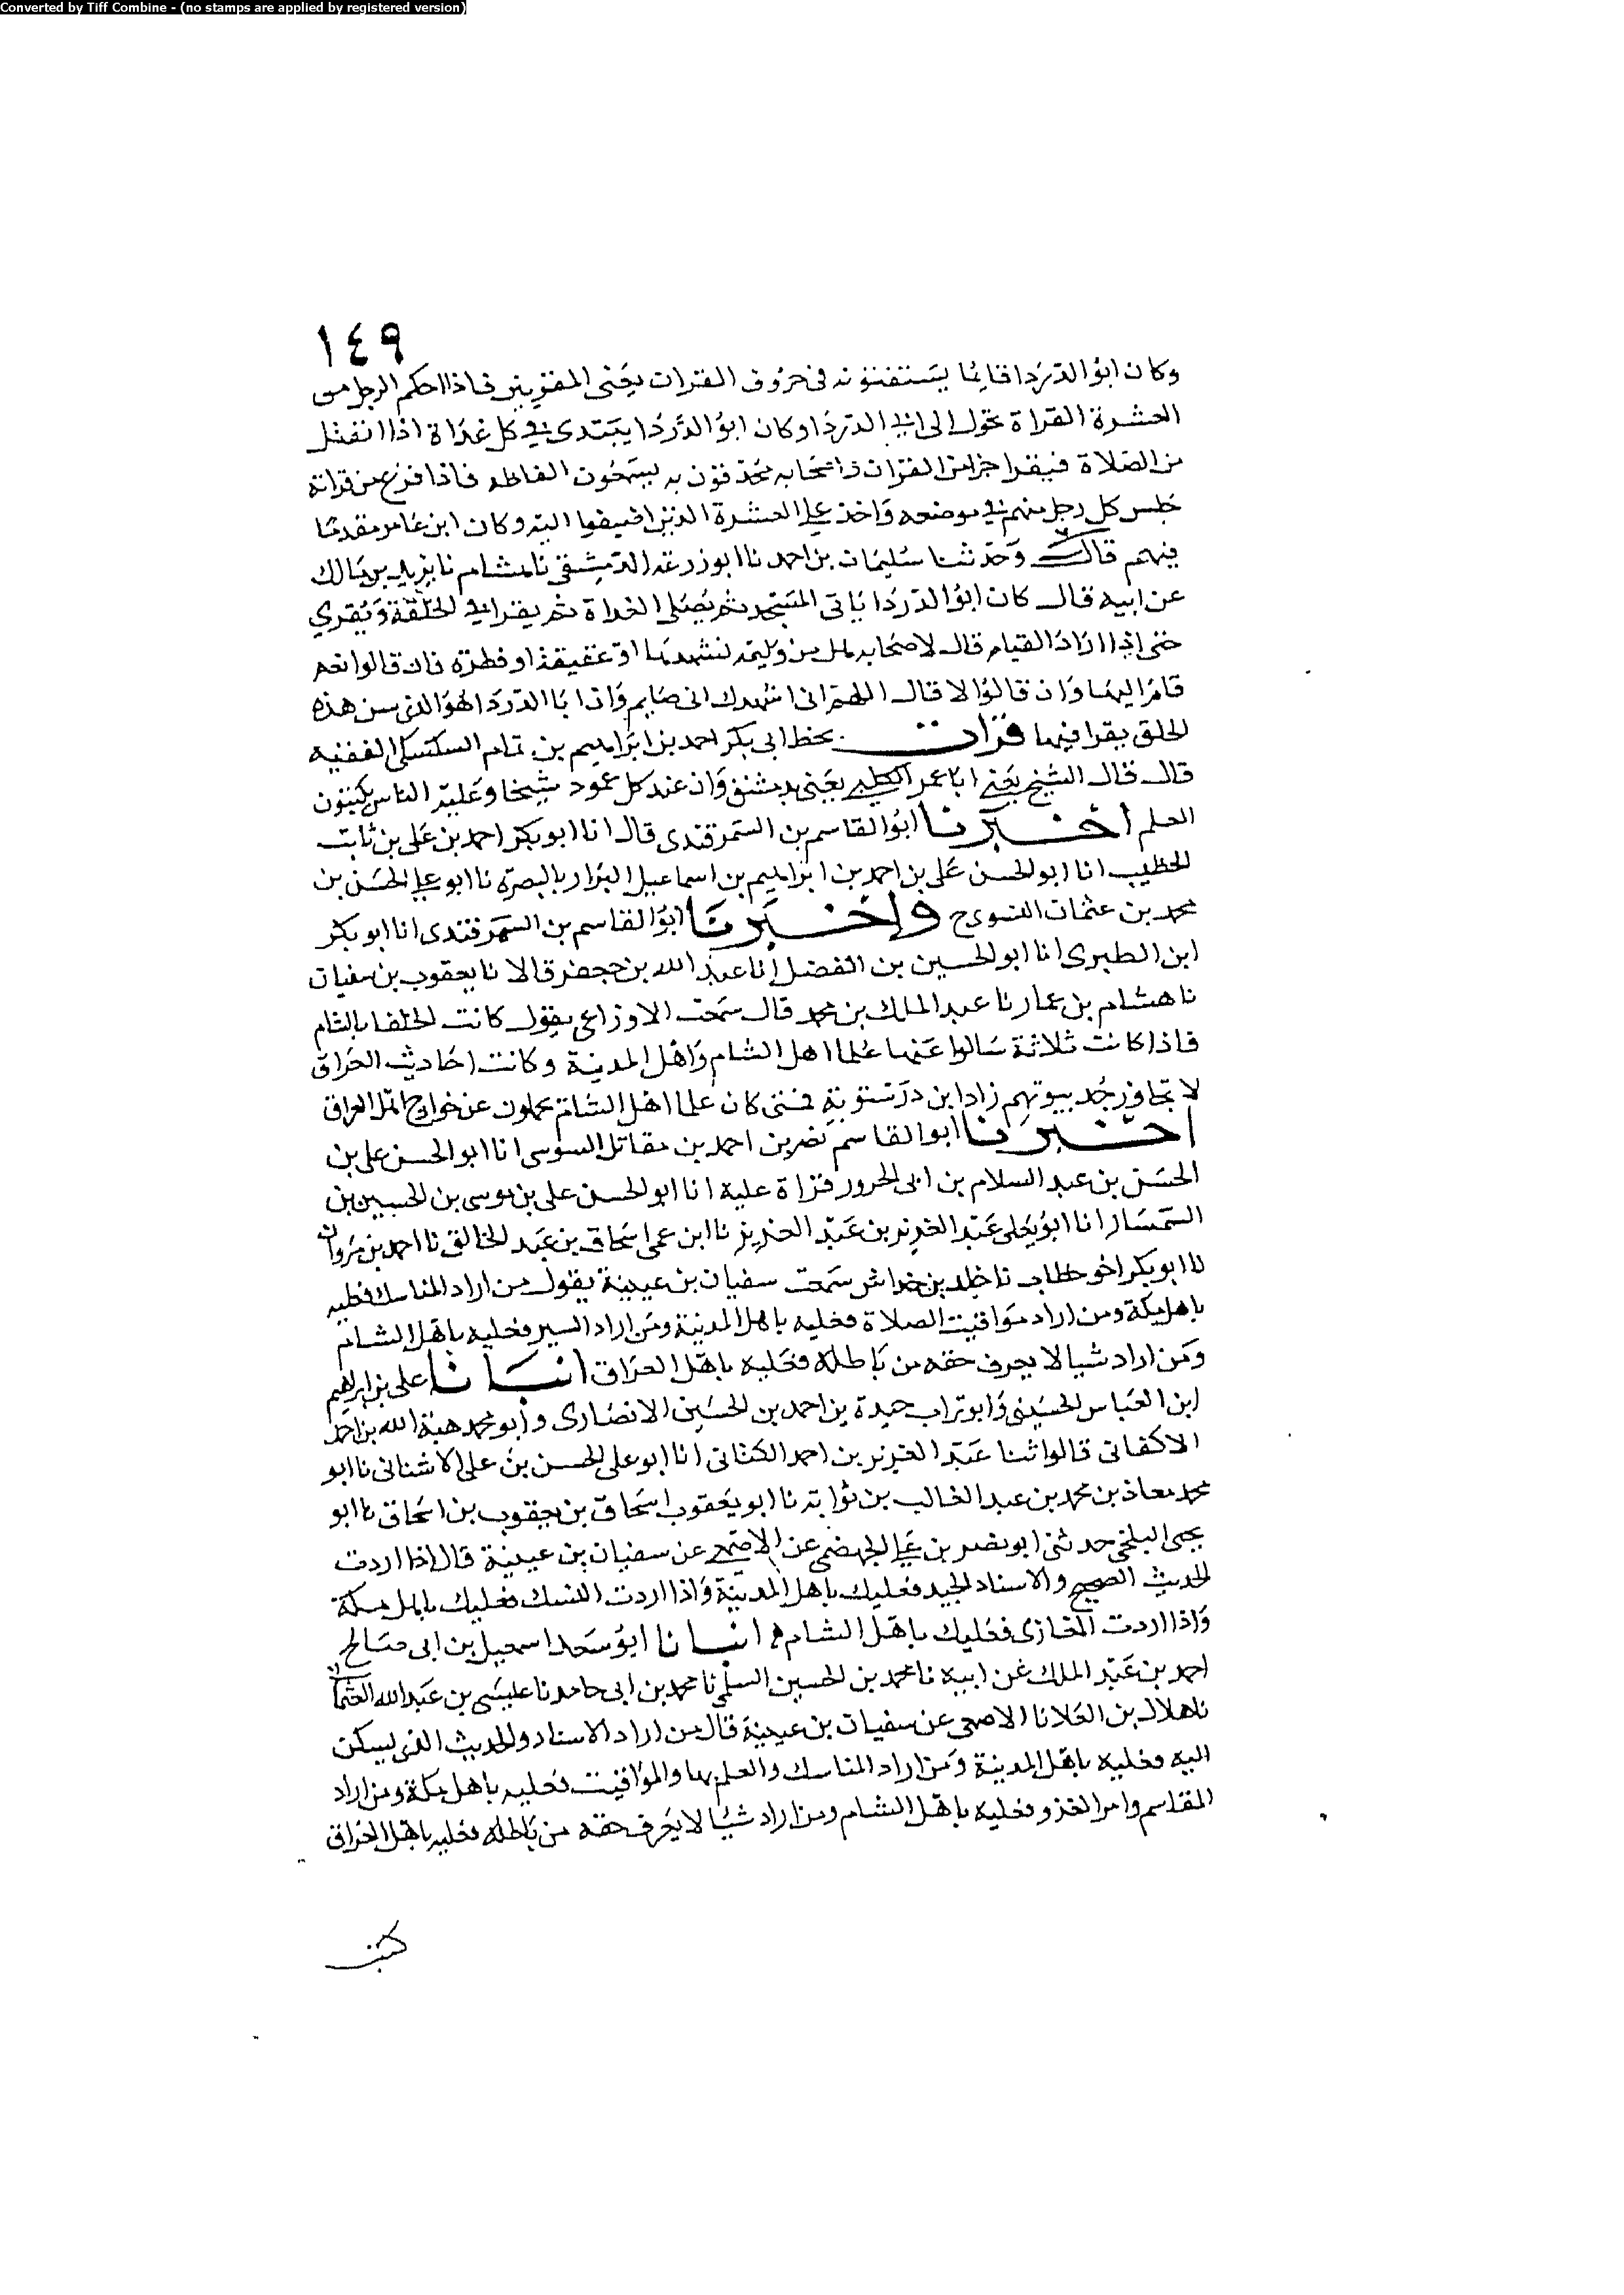 Converted by Tiff Combine - (no stamps are applied by registered version)
١٤٩
وكان ابو الدرداقائما يستفتونه فى حروف القران يعنى المقريين فاذا احكم الرجل من
العشرة القراة تحول الى ابي الدرداوكان ابو الدردا يبتدى في كل غداة اذا انفتل
من الصلاة فيقرا جزا من القران واصحابه محدقون به يسمعون الفاظه فاذا فرغ من قراته
جلس كل رجل منهم في موضعه واخذ على العشرة الذين اضيفوا اليه وكان ابن عامر مقدما
فيهم قال وحدثنا سليمان بن احمد نا ابو زرعة الدمشقى نا هشام نا يزيد بن مالك
عن ابيه قال كان ابو الدردا ياتى المسجد ثم يصلى الغداة ثم يقرا في الحلقة ويقري
حتى اذا اراد القيام قال لاصحابه هل من وليمة نشهدها او عقيقة او فطرة فان قالوا نعم
قام اليها وان قالوا لا قال اللهم انى اشهدك انى صايم وان ابا الدردا هو الذى سن هذه
الحلق يقرا فيها قرات بخط ابى بكر احمد بن ابراهيم بن تمام السكسكى الفقيه
قال قال الشيخ يعني ابا عمر الكلبي يعنى بدمشق وان عند كل عمود شيخا وعليه الناس يكتبون
العلم اخبرنا ابو القاسم بن السمرقندى قال انا ابو بكر احمد بن على بن ثابت
الخطيب انا ابو الحسن على بن احمد بن ابراهيم بن اسماعيل البزار بالبصرة نا ابو علي الحسن بن
محمد بن عثمان الفسوى ح واخبرنا ابو القاسم بن السمرقندى انا ابو بكر
ابن الطبرى انا ابو الحسين بن الفضل انا عبد الله بن جعفر قالا نا يعقوب بن سفيان
نا هشام بن عمار نا عبد الملك بن محمد قال سمعت الاوزاعى يقول كانت الخلفا بالشام
فاذا كانت ثلاثة سالوا عنها علما اهل الشام واهل المدينة وكانت احاديث العراق
لا تجاوز جدر بيوتهم زاد ابن درستوية فمتى كان علما اهل الشام يحملون عن خوارج اهل العراق
اخبرنا ابو القاسم نصر بن احمد بن مقاتل السوسى انا ابو الحسن على بن
الحسن بن عبد السلام بن ابى الحرور قراة عليه انا ابو الحسن على بن موسى بن الحسين بن
السمسار انا ابو يعلى عبد العزيز بن عبد العزيز نا ابن عمى اسحاق بن عبد الخالق نا احمد بن مروان
نا ابو بكر اخو خطاب نا خلد بن خداش سمعت سفيان بن عيينة يقول من اراد المناسك فعليه
باهل مكة ومن اراد مواقيت الصلاة فعليه باهل المدينة ومن اراد السير فعليه باهل الشام
ومن اراد شيا لا يعرف حقه من باطله فعليه باهل العراق انبانا على بن ابرهيم
ابن العباس الحسينى وابو تراب حيدة بن احمد بن الحسين الانصارى وابو محمد هبة الله بن احمد
الاكفانى قالوا ثنا عبد العزيز بن احمد الكتانى انا ابو على الحسن بن على الاشنانى نا ابو
محمد معاذ بن محمد بن عبد الغالب بن ثوابة نا ابو يعقوب اسحاق بن يعقوب بن اسحاق نا ابو
يحيى البلخى حدثنى ابو نصر بن علي الجهضمى عن الاصمعي عن سفيان بن عيينة قال اذا اردت
الحديث الصحيح والاسناد الجيد فعليك باهل المدينة واذا اردت النسك فعليك باهل مكة
واذا اردت المغازى فعليك باهل الشام انبانا ابو سعد اسمعيل بن ابى صالح
احمد بن عبد الملك عن ابيه نا محمد بن الحسين السلمى نا محمد بن ابى حامد نا عيسى بن عبد الله العثمانى
نا هلال بن العلا نا الاصمعى عن سفيان بن عيينة قال من اراد الاسناد والحديث الذى يسكن
اليه فعليه باهل المدينة ومن اراد المناسك والعلم بها والمواقيت فعليه باهل مكة ومن اراد
المقاسم وامر الغزو فعليه باهل الشام ومن اراد شيا لا يعرف حقه من باطله فعليه باهل العراق